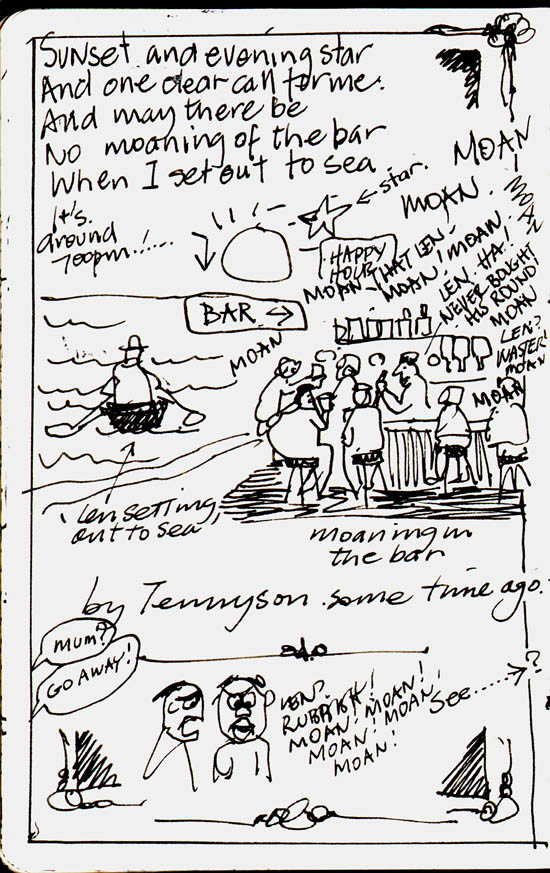 Sunset and evening star
And one clear call for me.
And may there be
No moaning of the bar
When I set out to sea
MOAN
MOAN.
MOAN
← star.
It's.
around
700pm......
HAPPY
HOUR
MOAN THAT LEN.
MOAN! MOAN.
LEN. HA!
NEVER BOUGHT
HIS ROUND!
MOAN
LEN?
WASTER!
MOAN
MOAN
BAR →
MOAN
Len setting
out to sea
moaning in
the bar
by Tennyson. some time ago.
MUM?
GO AWAY!
LEN?
RUBBISH!
MOAN! MOAN!
MOAN! MOAN!
MOAN!
see......→?